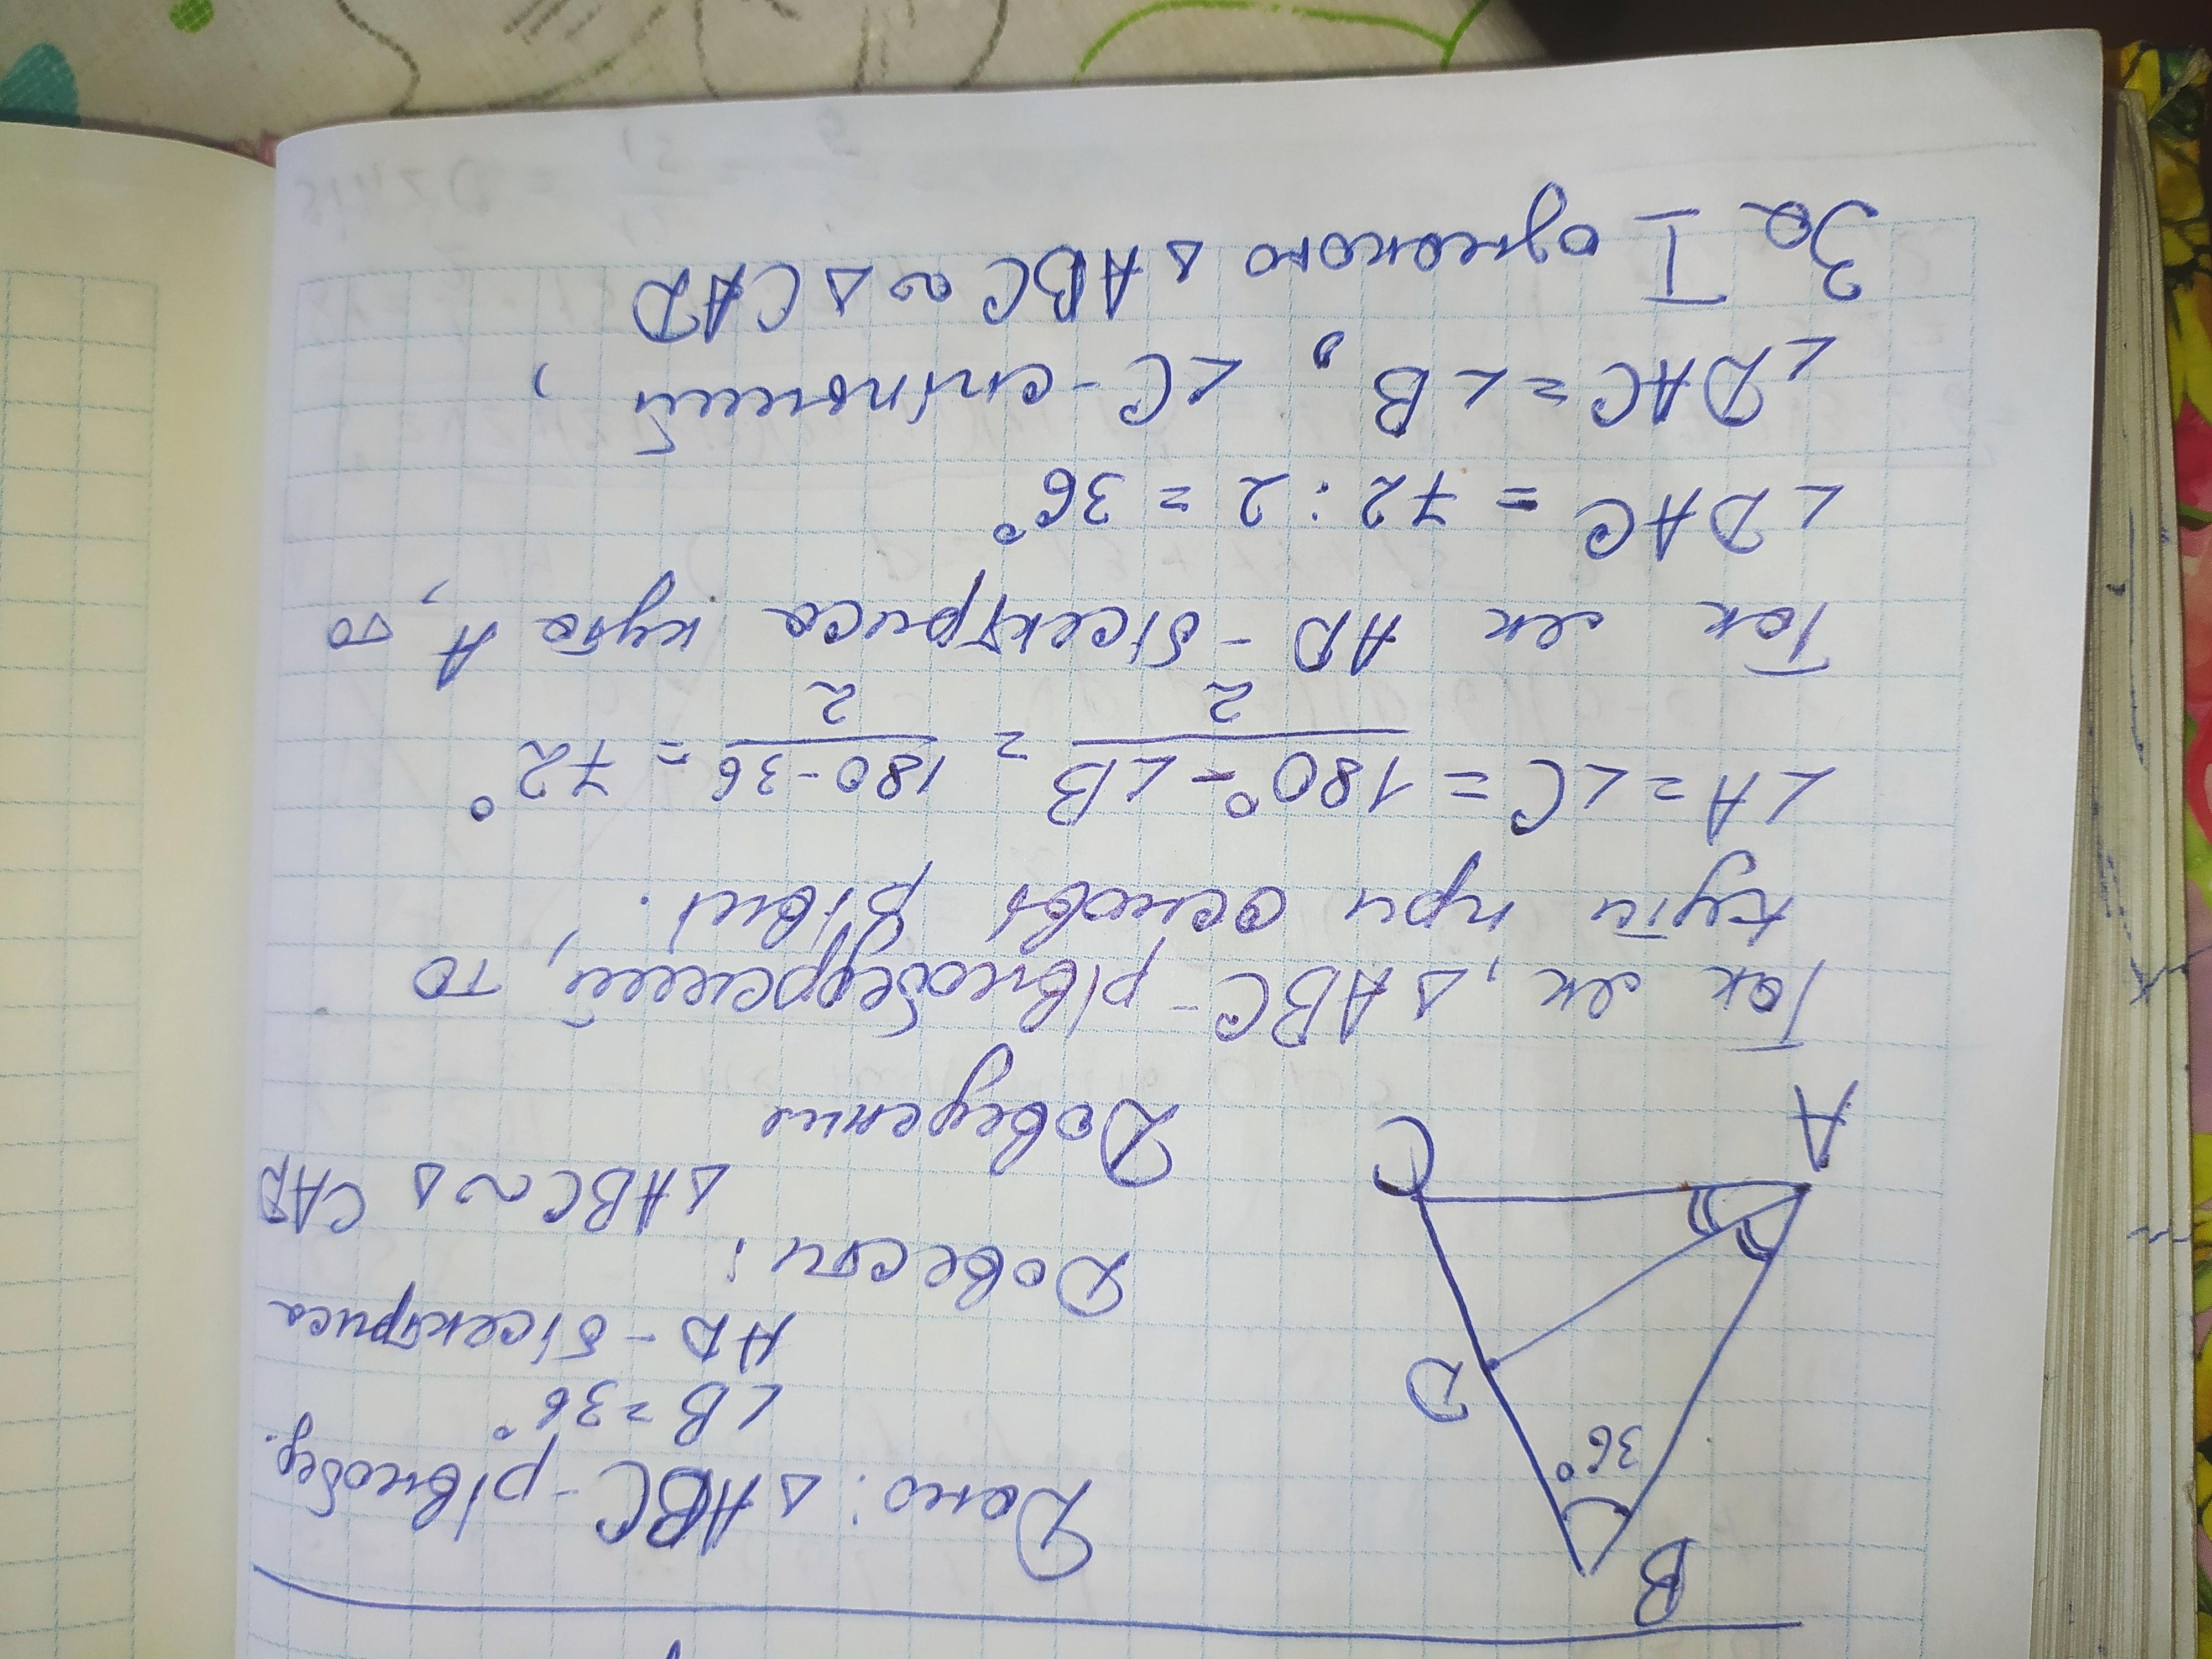 Дано: △ABC - рівнобед.
∠B = 36°
AD - бісектриса
Довести:
△ABC ~ △CAD
B
36°
D
C
A
Доведення
Так як, △ABC - рівнобедрений, то
кути при основі рівні.
∠A = ∠C = (180° - ∠B)/2 = (180 - 36)/2 = 72°
Так як AD - бісектриса кута A, то
∠DAC = 72 : 2 = 36°
∠DAC = ∠B, ∠C - спільний,
За I ознакою △ABC ~ △CAD